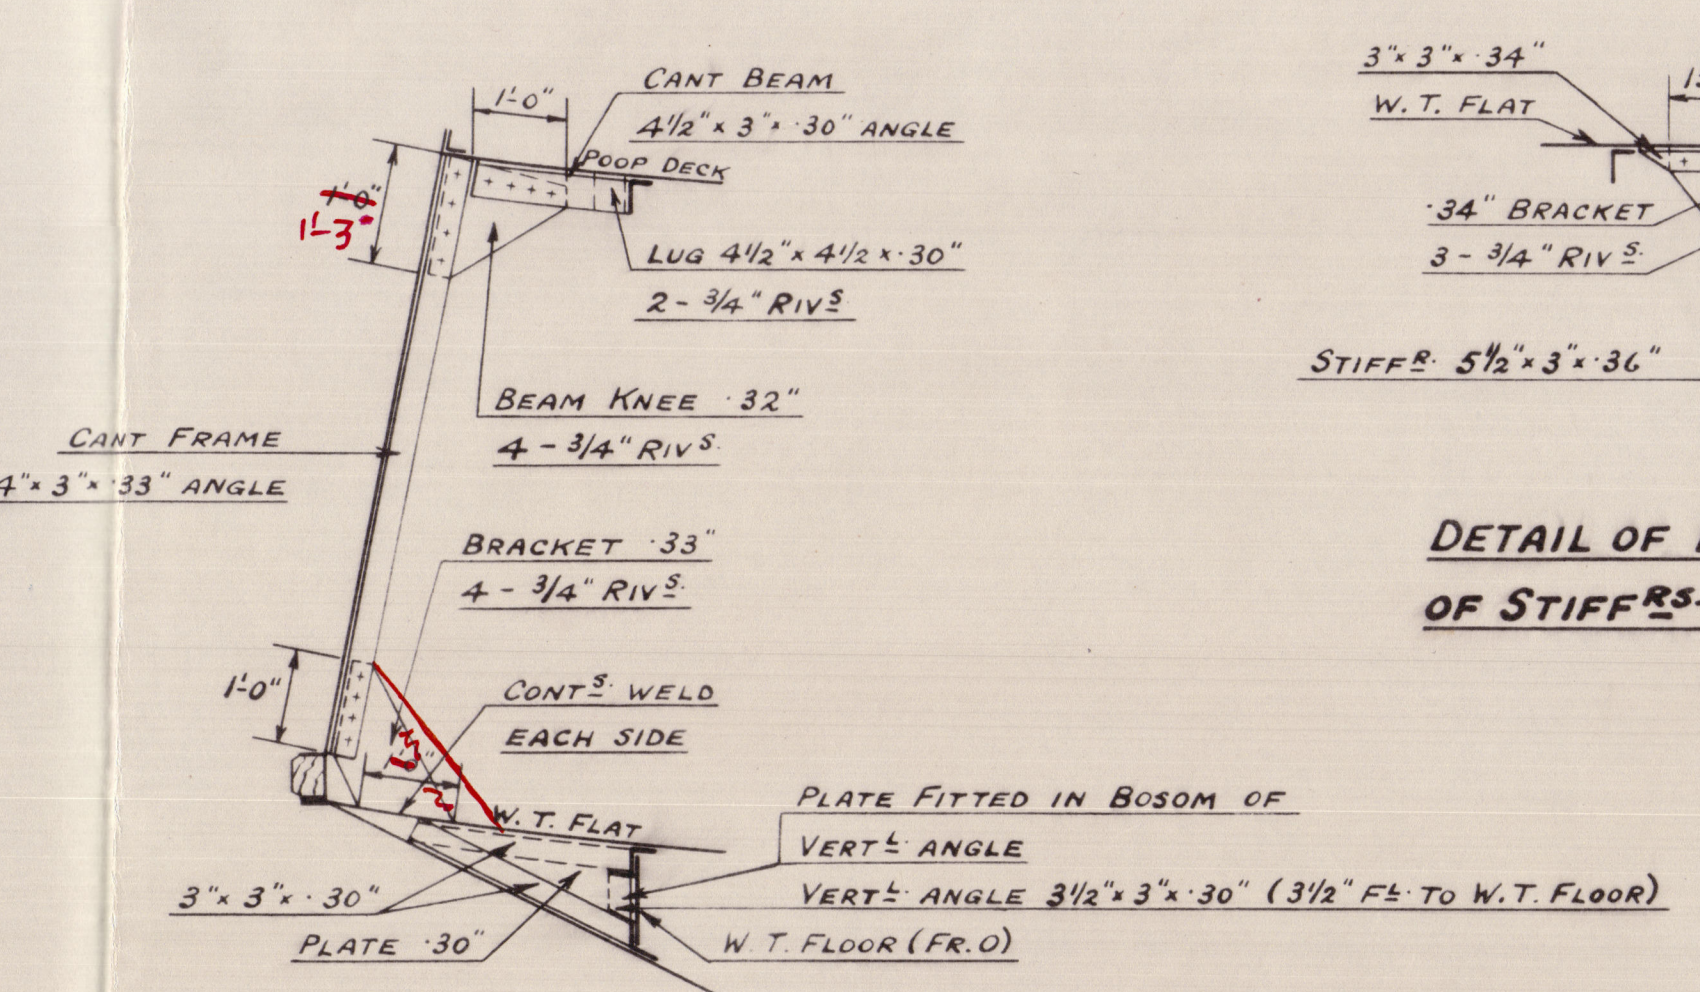 1'-0"
CANT BEAM
4 1/2" x 3" x .30" ANGLE
POOP DECK
1'-0"
1'-3"
LUG 4 1/2" x 4 1/2 x .30"
2 - 3/4" RIVS.
BEAM KNEE .32"
4 - 3/4" RIVS.
CANT FRAME
4" x 3" x .33" ANGLE
BRACKET .33"
4 - 3/4" RIVS.
1'-0"
CONTS. WELD
EACH SIDE
W. T. FLAT
PLATE FITTED IN BOSOM OF
VERTL. ANGLE
VERTL. ANGLE 3 1/2" x 3" x .30" (3 1/2" FL. TO W. T. FLOOR)
3" x 3" x .30"
PLATE .30"
W. T. FLOOR (FR. 0)
3" x 3" x .34"
W. T. FLAT
.34" BRACKET
3 - 3/4" RIVS.
STIFFR. 5 1/2" x 3" x .36"
DETAIL OF
OF STIFFRS.